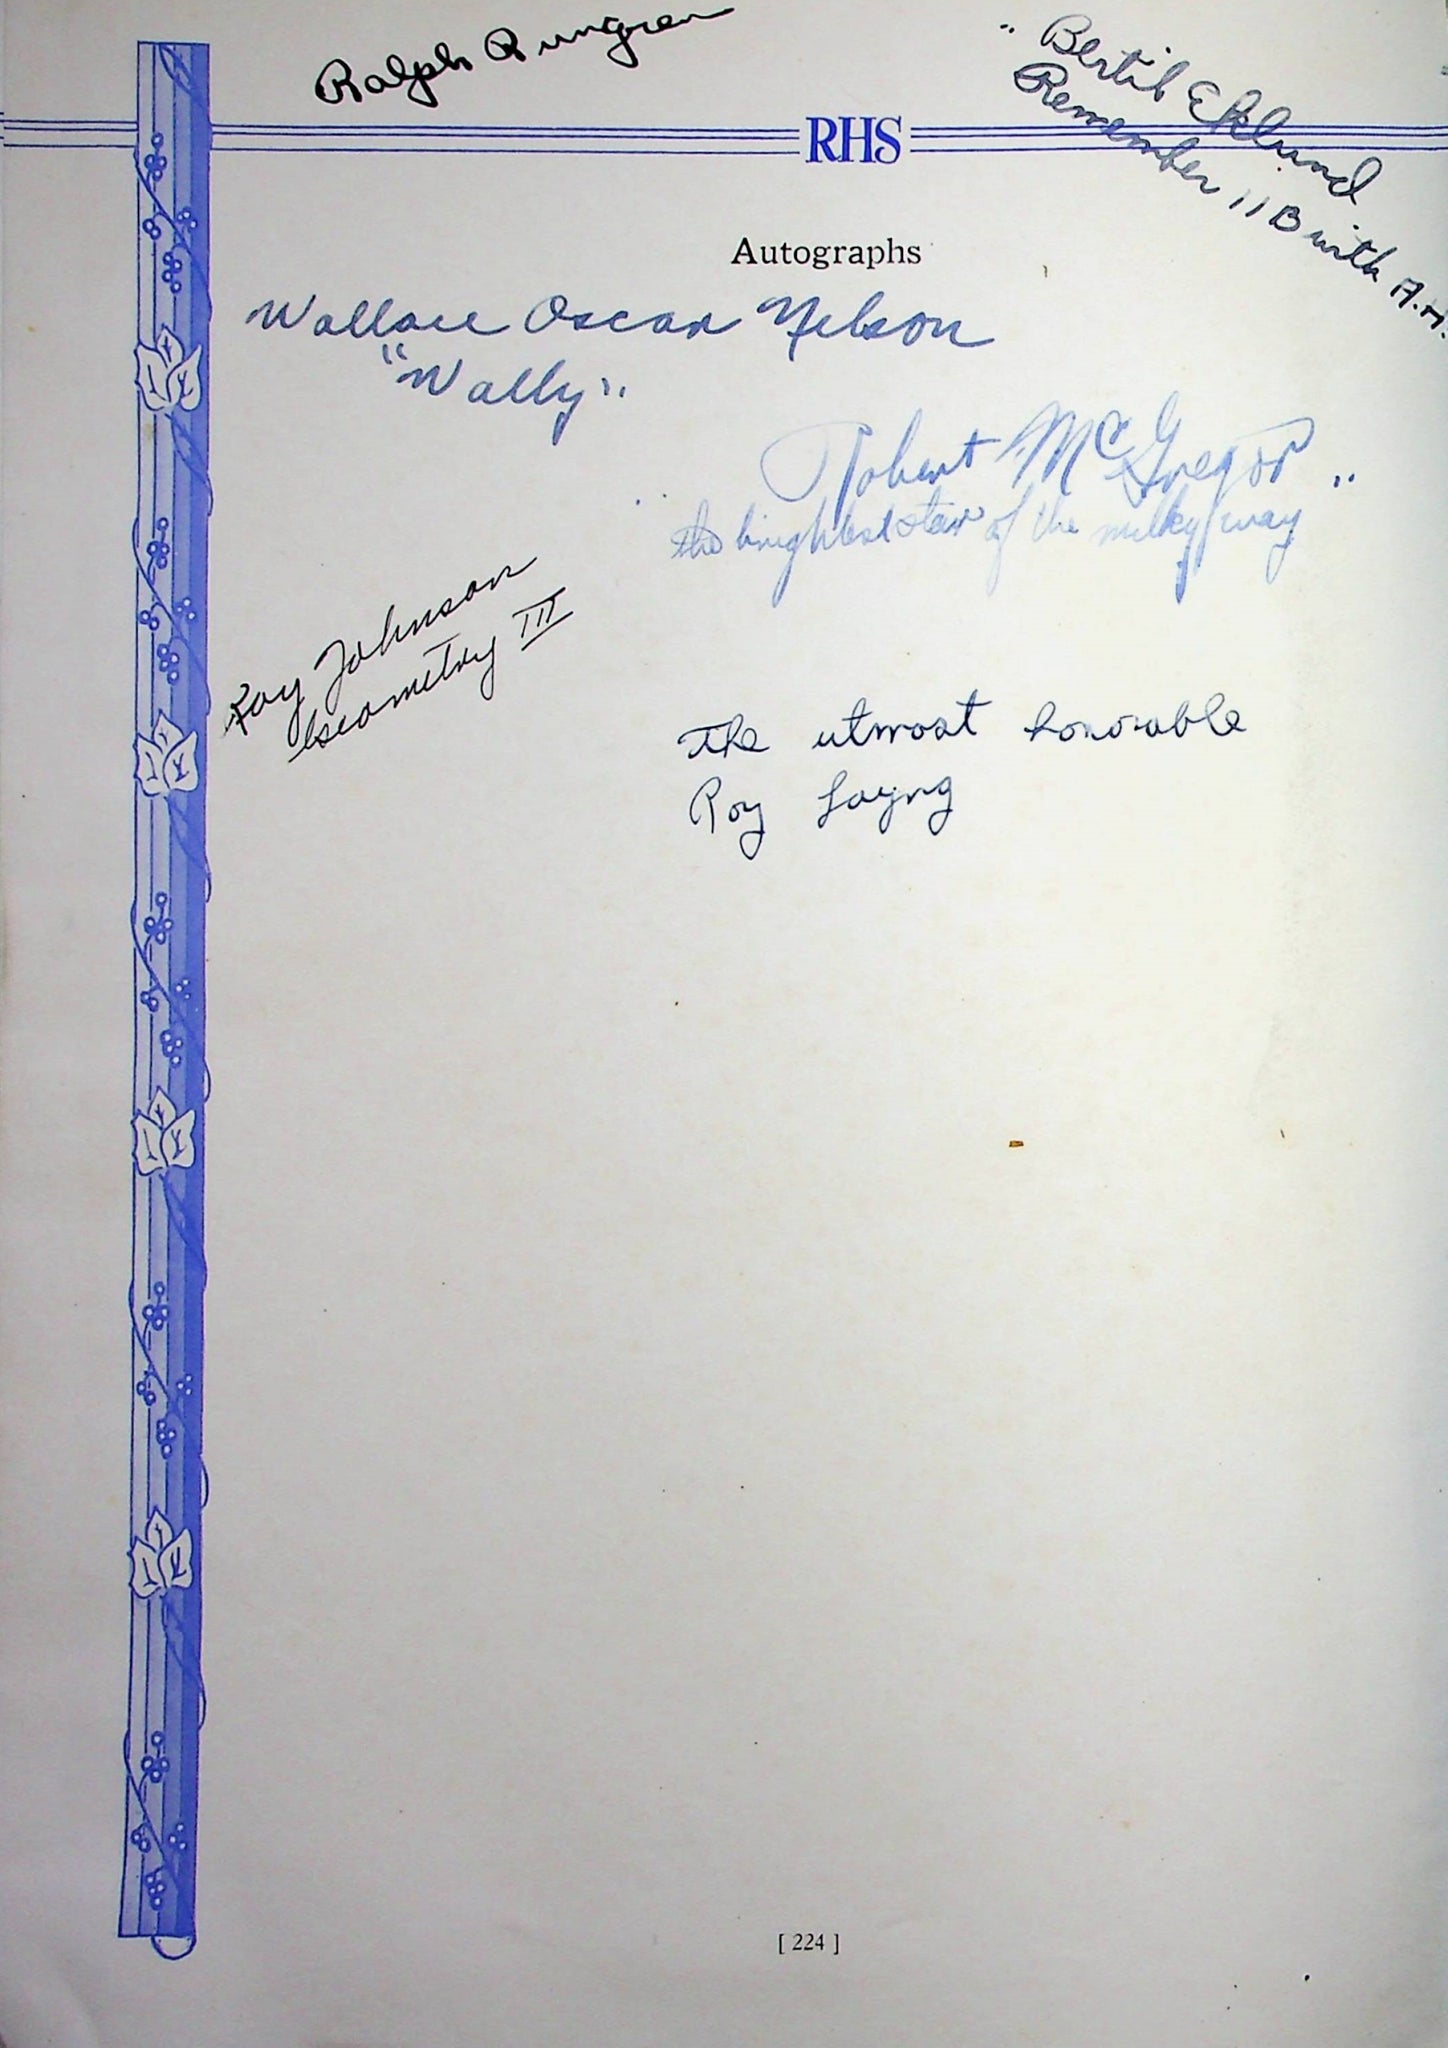 Ralph Rungren
Bertil Eklund
Remember 11B with A.H.
RHS
Autographs
Wallace Oscar Nelson
"Wally"
Robert McGregor
the brightest star of the milky way
Roy Johnson
Geometry III
The utmost honorable
Roy Layng
[ 224 ]